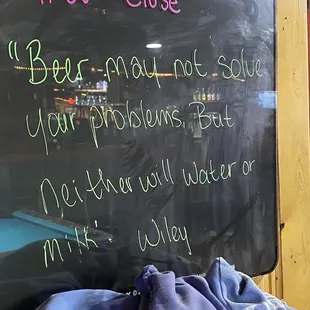 Close
"Beer may not solve
your problems, But
Neither will Water or
milk" Wiley